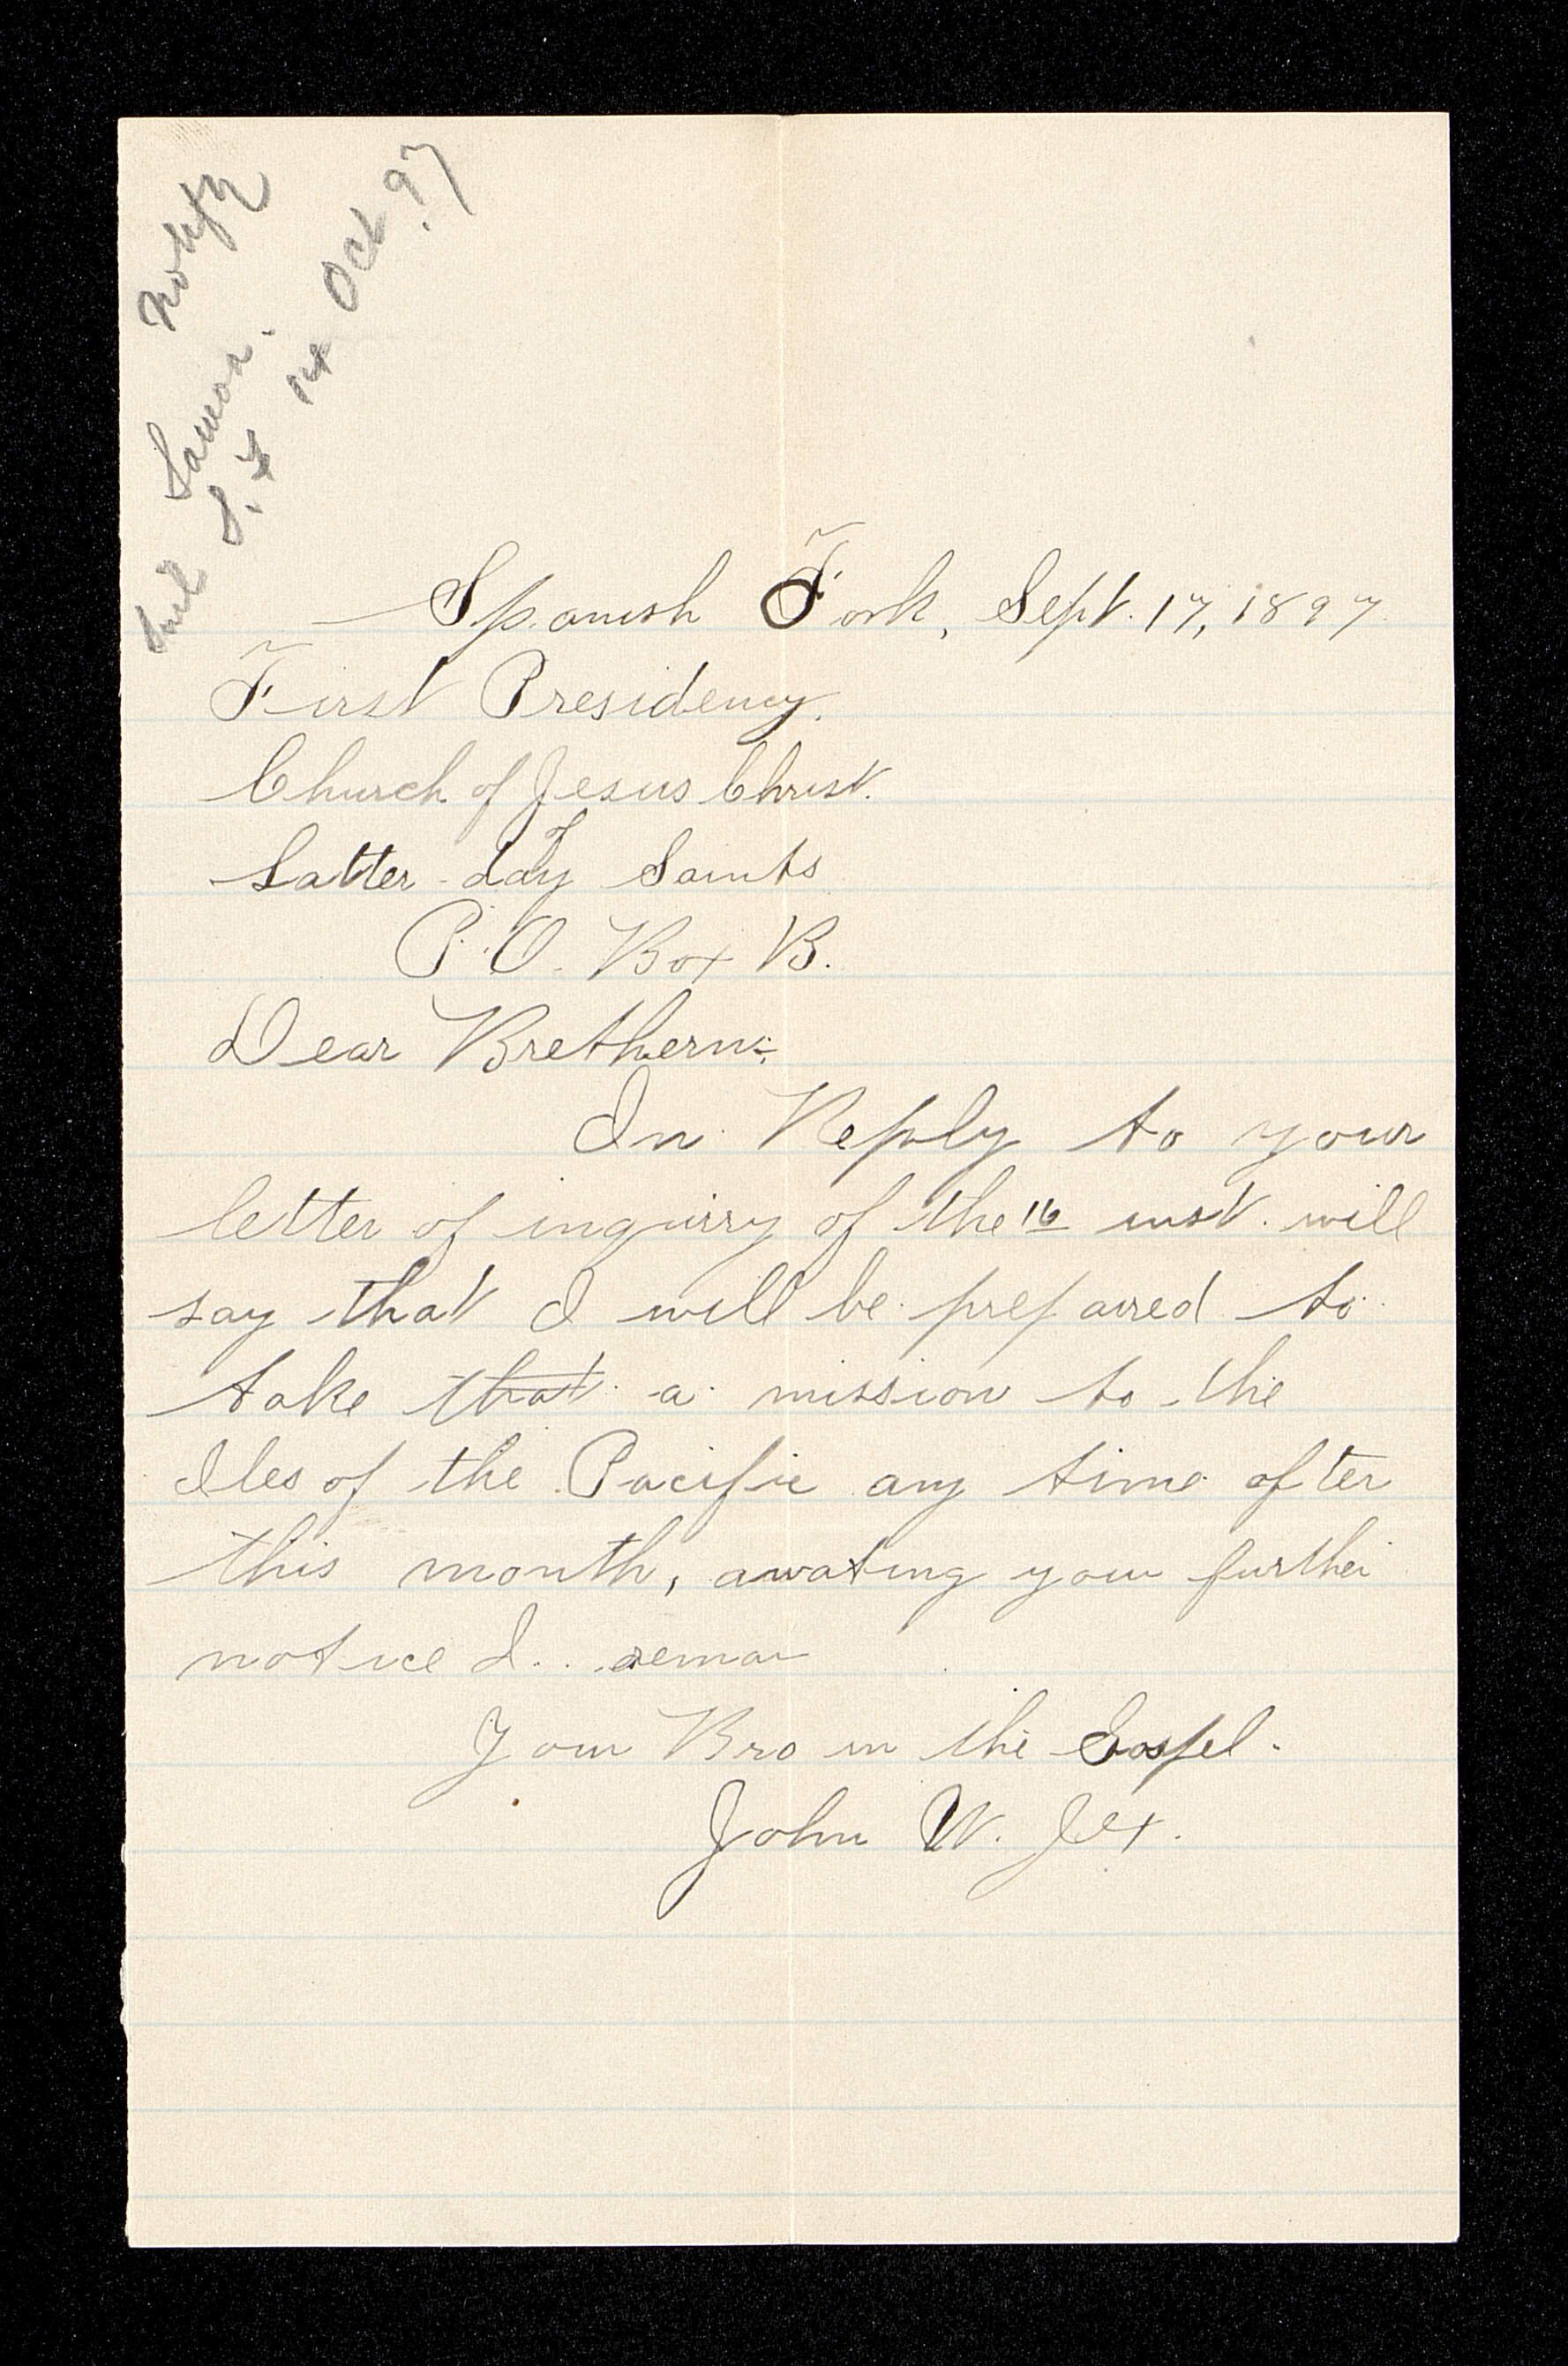 Notify
Samoa.
14 Oct. 97
Spanish Fork, Sept. 17, 1897
First Presidency.
Church of Jesus Christ.
of
Latter-day Saints
P.O. Box B.
Dear Brethern:
In Reply to your
letter of inquirry of the 16 inst. will
say that I will be prepaired to
take that a mission to the
Iles of the Pacific any time after
this month, awating your further
notice I remai
Your Bro in the Gospel.
John W. Jex.